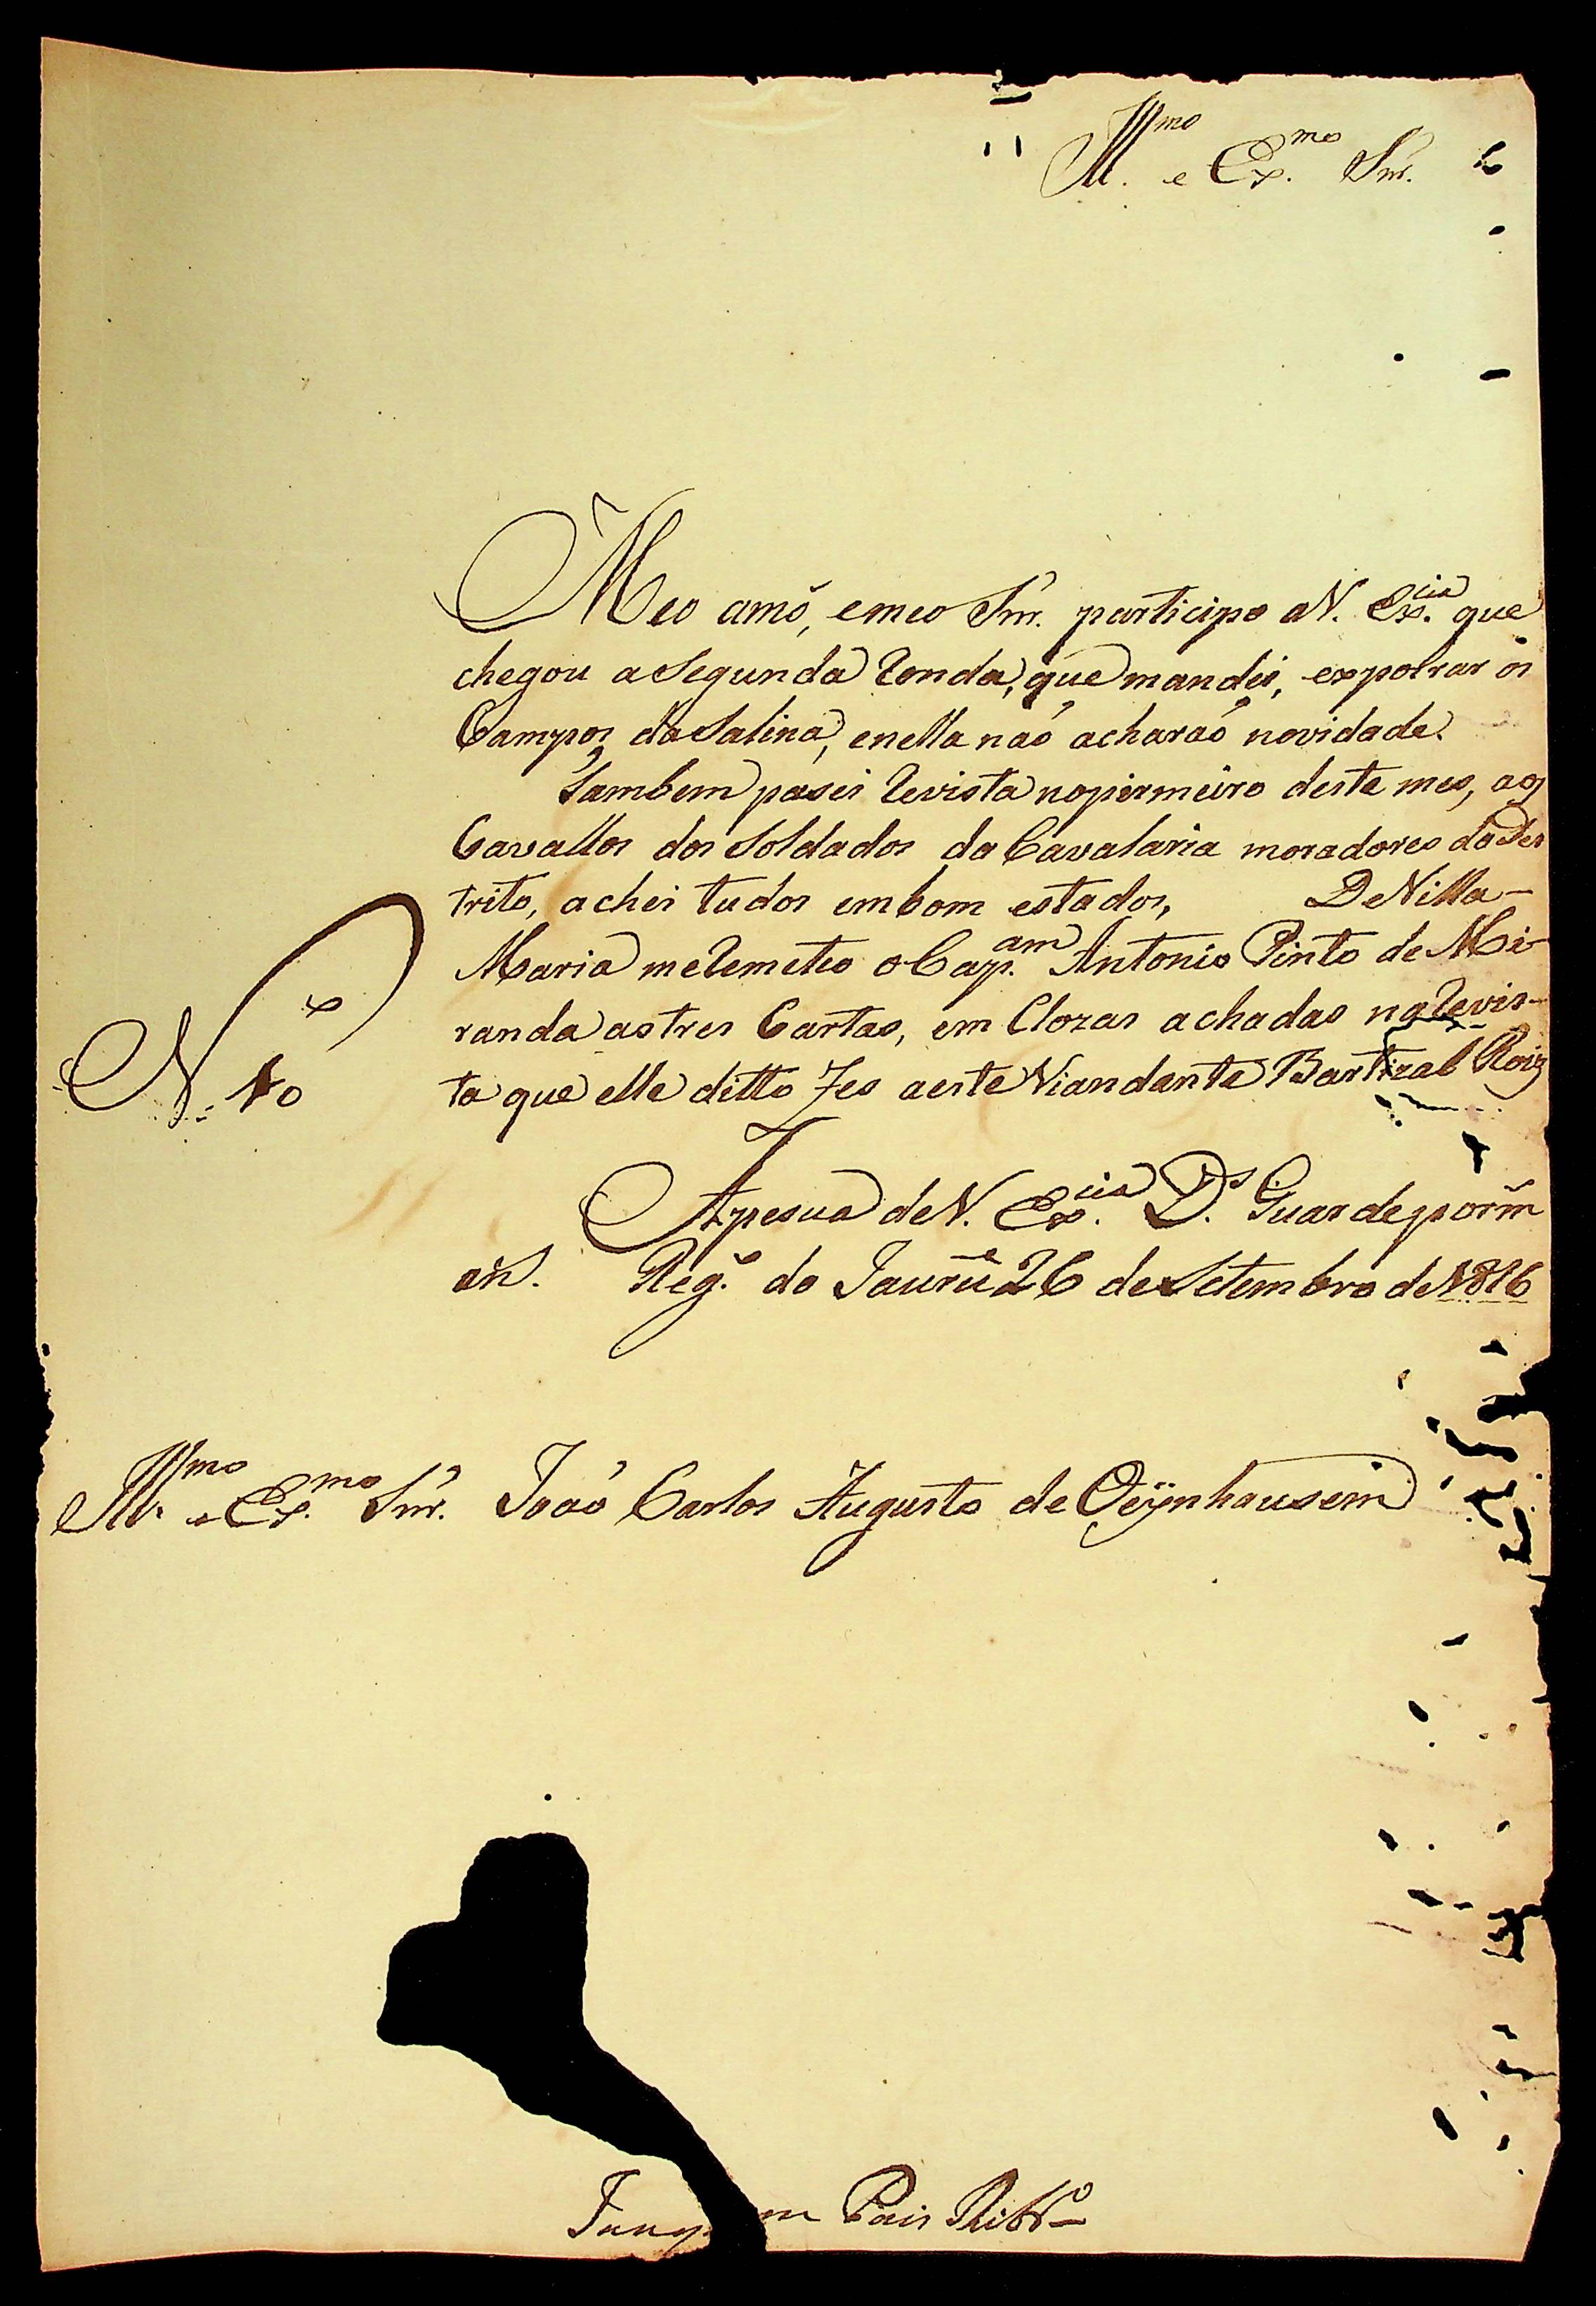 Ill.mo e Ex.mo Snr.
Meo amó, emeo Snr. participo aV. Ex.cia que
chegou aSegunda Ronda, que mandei, expolrar os
Campos da Salina, enella naó acharaó novidade.
Tambem pasei Revista nopirmeiro deste mes, aos
Cavallos dos Soldados da Cavalaria moradores do Des
trito, achei tudos embom estados, DeVilla-
Maria meRemeteo oCap.am Antonio Pinto de Mi-
randa astres Cartas, em Clozas achadas naRevis-
ta que elle ditto Fes aeste Viandante Roiz
N. 10
Apesua deV. Ex.cia D.s Guardepor m
an.s Reg.o do Jaurú 26 deSetembro de1816
Ill.mo e Ex.mo Snr. Joaó Carlos Augusto de Oeÿnhausem
Pais Ribr.o